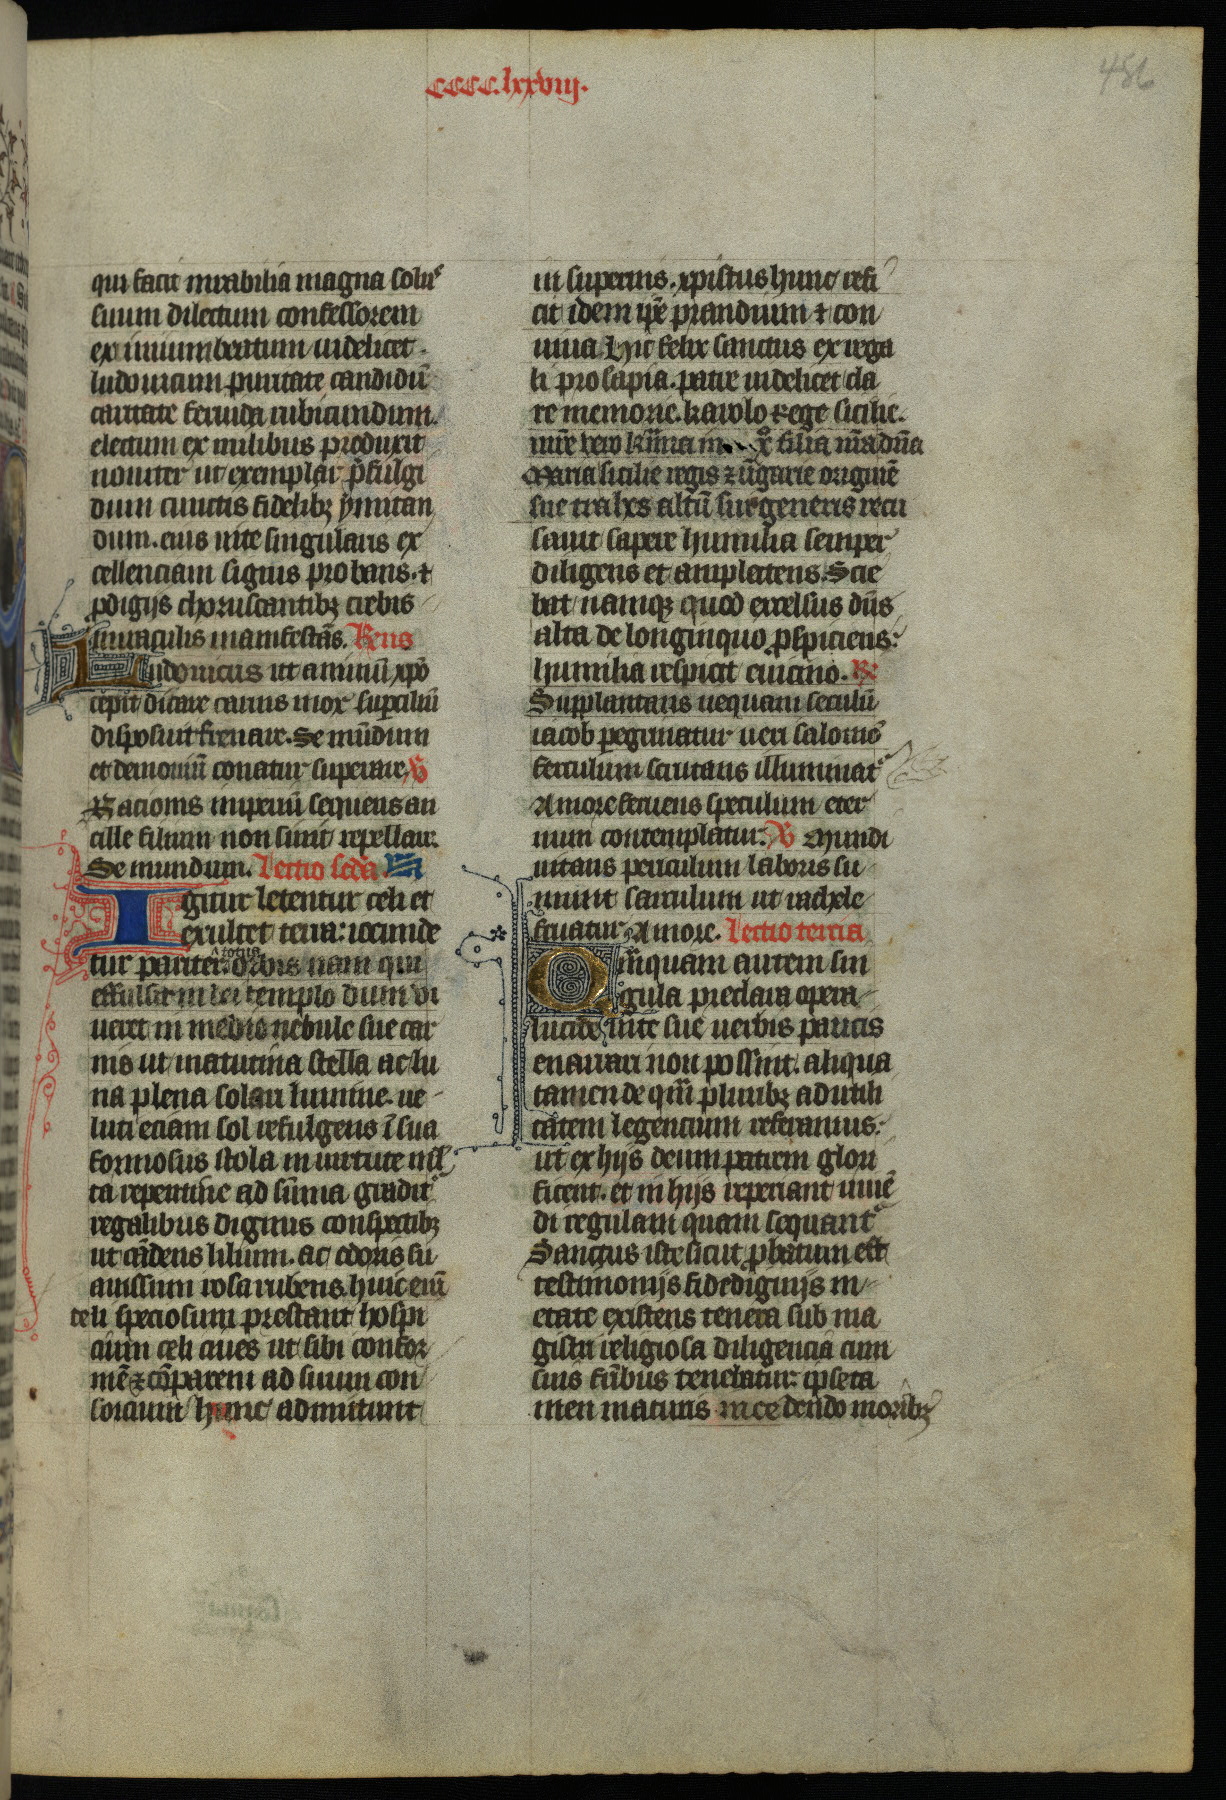 cccc.lxxviij.
486
qui facit mirabilia magna solꝰ
suum dilectum confessorem
eximium beatum uidelicet
ludouicum puritate candidū
caritate feruida rubicundum.
electum ex milibus produxit
nouiter ut exemplar p̄fulgi
dum cunctis fidelibꝫ ymitan
dum. eius uite singularis ex
cellenciam signis probans. ⁊
ꝓdigijs choruscantibꝫ crebris
miraculis manifestās. Rens
Ludouicus ut animū xpo
cepit dicare carnis mox supciliū
disposuit frenare. Se mūdum
et demoniū conatur superare. V
Racionis imperiū sequens an
cille filium non sinit repellare.
Se mundum. Lectio scda.
Igitur letentur celi et
exultet terra: iocunde
tur pariter totus orbis nam qui
effulsit in dei templo dum vi
ueret in medio nebule sue car
nis ut matutina stella ac lu
na plena solari lumine. ue
luti eciam sol refulgens ī sua
formosus stola in uirtute
ta repentine ad sūma gradit᷑
regalibus dignus conspectibꝫ
ut cādens lilium. ac odoris su
auissimi rosa rubens. huic eni᷑
celi speciosum prestant hospi
cium celi ciues ut sibi confor
mē ⁊ cōparem ad suum con
sorcium hunc admittunt
in supernis. xpistus hunc refi
cit idem ip̄e prandium ⁊ con
uiua Hic felix sanctus ex rega
li prosapia. patre uidelicet cla
re memorie. karolo Rege sicilie.
mr̄e vero kr̄ima filia nr̄a dn̄a
Maria sicilie regis ⁊ ūgarie originē
sue trahēs altū sui generis recu
sauit sapere humilia semper
diligens et amplectens. Scie
bat namqꝫ quod excelsus dn̄s
alta de longinquo ꝓspiciens:
humilia respicit euicino. R̄
Supplantans nequam seculū
iacob ꝑegrinatur ueri salomōs
ferculum scrutans illuminat᷑
Amore feruens speculum eter
num contemplatur. V Mundi
uitans periculum laboris su
munt sarculum ut rachele
fruatur. Amore. Lectio tercia
Quāquam autem sin
gula preclara opera
lucide uite sue uerbis paucis
enarrari non possint. aliqua
tamen de qm̄ pluribꝫ ad utili
tatem legencium referamus:
ut ex hijs deum patrem glori
ficent. et in hijs reperiant uiuē
di regulam quam sequant᷑
Sanctus iste sicut ꝓbatum est
testimonijs fidedignijs in
etate existens tenera sub ma
gistri religiosa diligencia cum
suis frībus tenebatur: ipse ta
men maturis incedendo moribꝫ